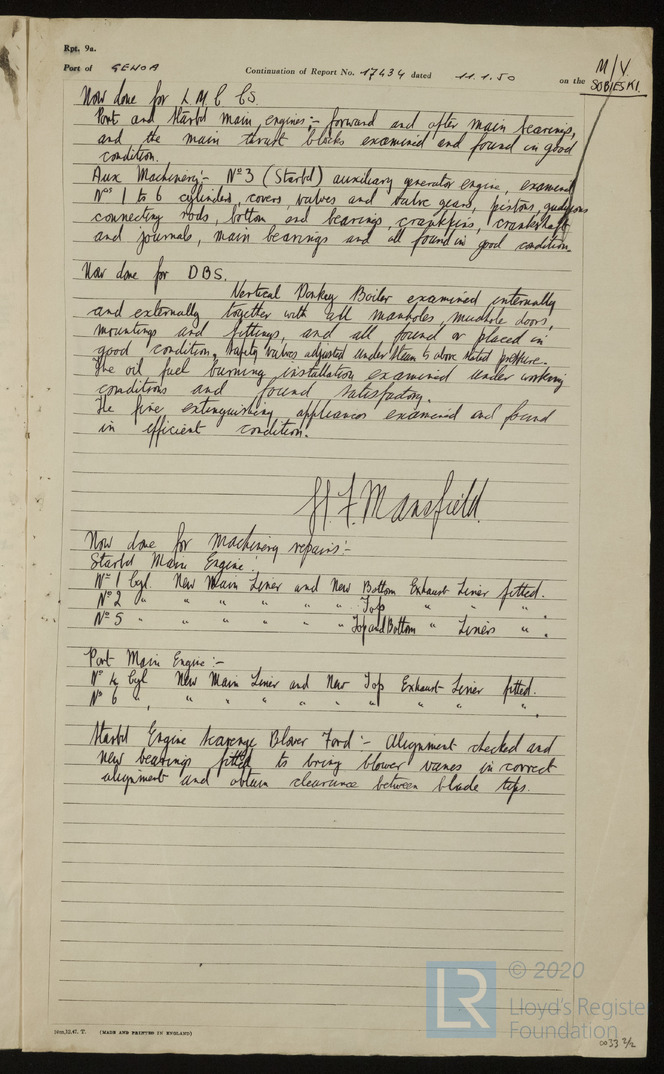 Rpt. 9a.
Port of GENOA Continuation of Report No. 17434 dated 11.1.50 on the M/V SOBIESKI.
Now done for L.M.C CS.
Port and Starbd main engines:- forward and after main bearings,
and the main thrust blocks examined and found in good
condition.
Aux Machinery:- No 3 (Starbd) auxiliary generator engine, examined
Nos 1 to 6 cylinders, covers, valves and valve gears, pistons, gudgeons
connecting rods, bottom end bearings, crankpins, crankshaft
and journals, main bearings and all found in good condition.
Now done for DBS.
Vertical Donkey Boiler examined internally
and externally together with all manholes, mudhole doors,
mountings and fittings, and all found or placed in
good condition. Safety valves adjusted under steam to above stated pressure.
The oil fuel burning installation examined under working
conditions and found satisfactory.
The fire extinguishing appliances examined and found
in efficient condition.
H. F. Mansfield.
Now done for machinery repairs:-
Starbd Main Engine:
No 1 Cyl. New Main Liner and New Bottom Exhaust Liner fitted.
No 2 " " " " " " " Top " " " .
No 5 " " " " " " " Top and Bottom " Liners " .
Port Main Engine:-
No 4 Cyl New Main Liner and New Top Exhaust Liner fitted.
No 6 " " " " " " " " " " .
Starbd Engine Scavenge Blower Forcd:- Alignment checked and
new bearings fitted to bring blower vanes in correct
alignment and obtain clearance between blade tips.
12.47. T. (MADE AND PRINTED IN ENGLAND)
LR
© 2020
Lloyd's Register
Foundation
0033 2/2